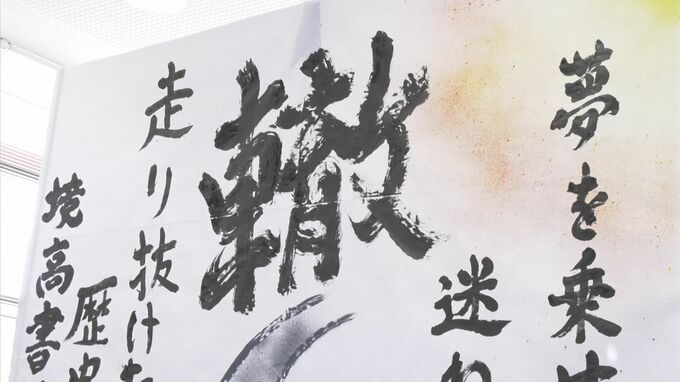 夢を乗せ
迷わ
轍
走り抜けた
歴史
境高書